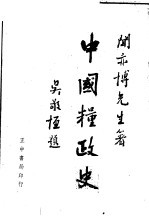 聞亦博先生著
中國糧政史
吳敬恆題
正中書局印行